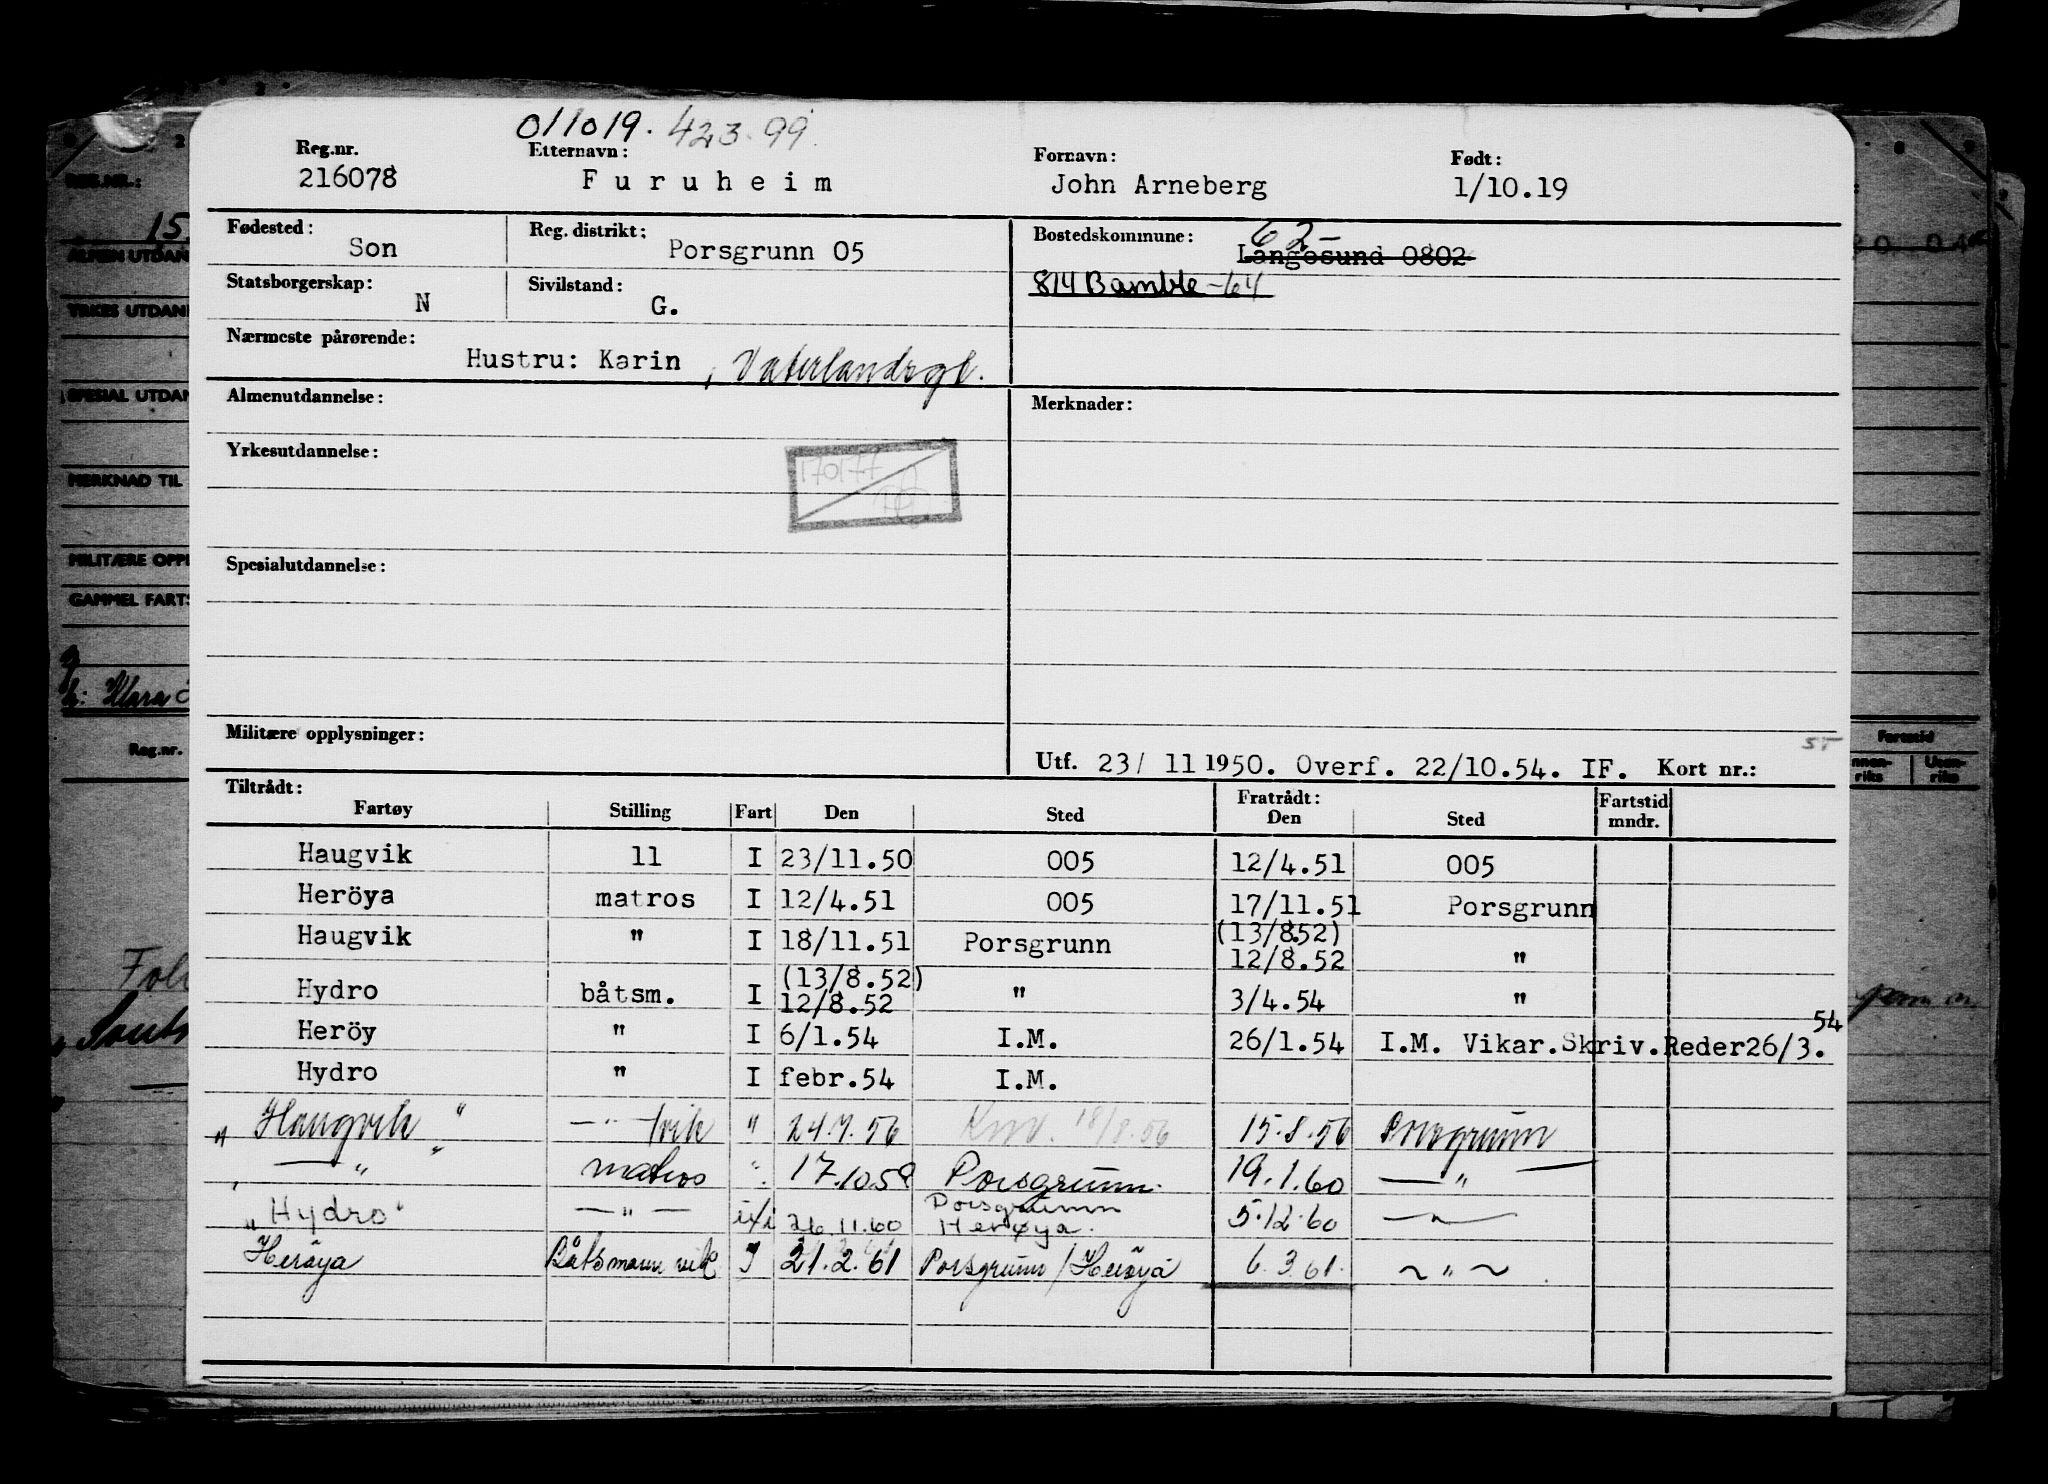 011019. 423.99
Reg.nr. Etternavn: Fornavn: Født:
216078 Furuheim John Arneberg 1/10.19
Fødested: Reg. distrikt: Bostedskommune: 62-
Son Porsgrunn 05 Langesund 0802
Statsborgerskap: Sivilstand: 814 Bamble -64
N G.
Nærmeste pårørende:
Hustru: Karin, Vaterlandsgt.
Almenutdannelse: Merknader:
Yrkesutdannelse:
170177
Spesialutdannelse:
Militære opplysninger:
ST
Utf. 23/ 11 1950. Overf. 22/10.54. IF. Kort nr.:
Tiltrådt: Fratrådt: Fartstid
Fartøy Stilling Fart Den Sted Den Sted mndr.
Haugvik ll I 23/11.50 005 12/4.51 005
Heröya matros I 12/4.51 005 17/11.51 Porsgrunn
Haugvik " I 18/11.51 Porsgrunn (13/8.52) 12/8.52 "
Hydro båtsm. I (13/8.52) 12/8.52 " 3/4.54 "
Heröy " I 6/1.54 I.M. 26/1.54 I.M. Vikar. Skriv. Reder 26/3. 54
Hydro " I febr.54 I.M.
"Haugvik" —"— /vik " 24.7.56 18/8.56 15.8.56 Porsgrunn
" —"— " matros " 17.10.59 Porsgrunn. 19.1.60 —"—
"Hydro" —"— u/i 26.11.60 Porsgrunn Herøya. 5.12.60 —"—
Heröya Båtsmann vik. I 21.2.61 Porsgrunn/Heröya 6.3.61. ~"~
REG.NR.:
15.
ALMEN UTDAN
YRKES UTDAN
SPESIAL UTDAN
MERKNAD TIL
MILITÆRE OPPL
GAMMEL FARTS
Reg.nr.
Fartstid